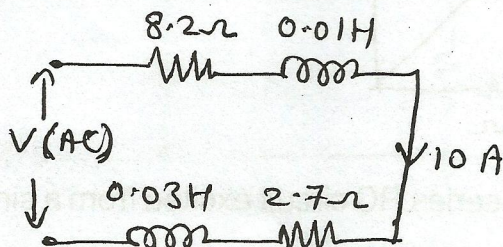 8.2Ω 0.01H
V(AC)
10 A
0.03H 2.7Ω